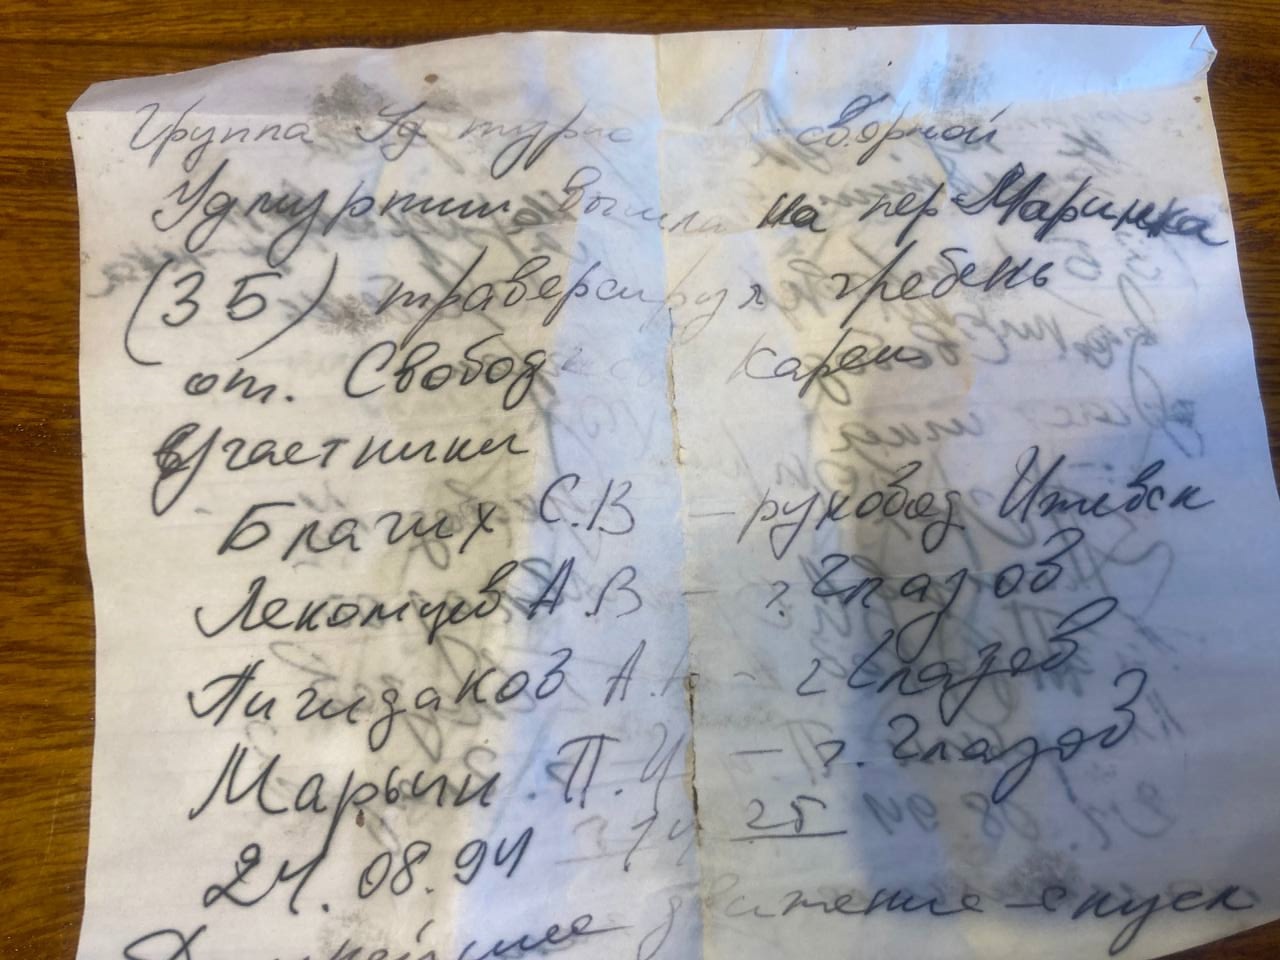 Группа Уд турис сборной
Удмуртии вышла на пер Маришка
(3Б) траверсируя гребень
от. Свобод Корею
Участники
Благих С.В – руковод Ижевск
Лекомцев А.В – г. Глазов
А.А. – г Глазов
Марьин П.И – г. Глазов
24.08.94 25
движение – спуск